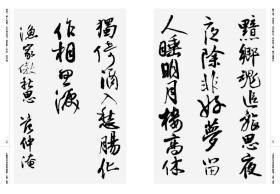 黯鄉魂追旅思夜
夜除非好夢留
人睡明月樓高休
獨倚酒入愁腸化
作相思淚
漁家傲秋思 范仲淹